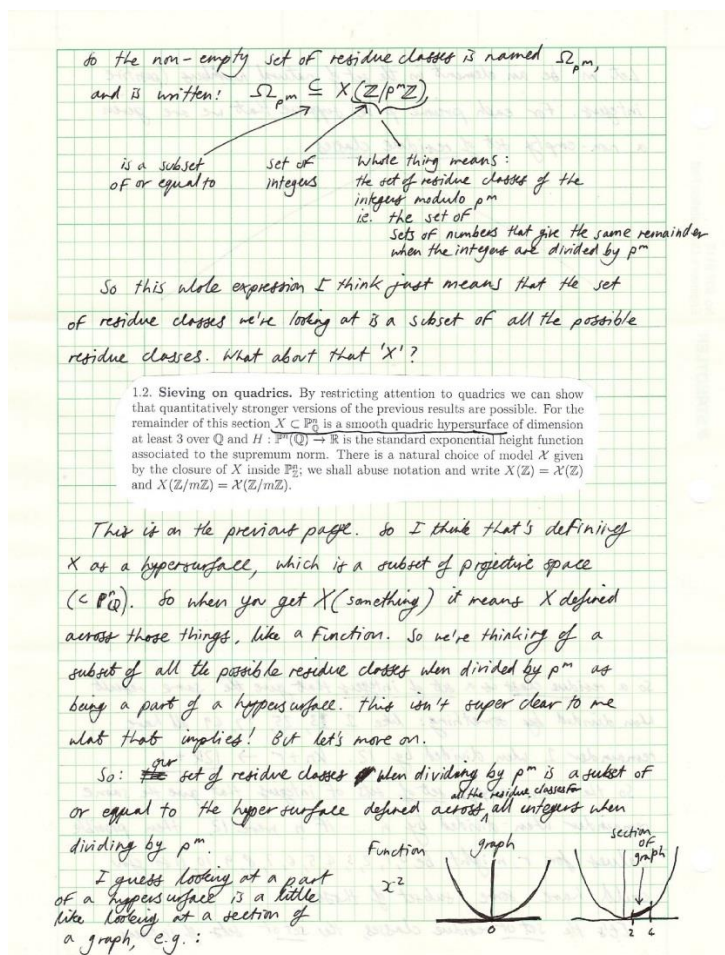 So the non-empty set of residue classes is named Ω_p^m,
and is written: Ω_p^m ⊆ X(ℤ/p^mℤ)
is a subset of or equal to
set of integers
Whole thing means:
the set of residue classes of the
integers modulo p^m
ie. the set of
sets of numbers that give the same remainder
when the integers are divided by p^m
So this whole expression I think just means that the set
of residue classes we're looking at is a subset of all the possible
residue classes. What about that 'X'?
1.2. Sieving on quadrics. By restricting attention to quadrics we can show
that quantitatively stronger versions of the previous results are possible. For the
remainder of this section X ⊂ ℙⁿ_ℚ is a smooth quadric hypersurface of dimension
at least 3 over ℚ and H : ℙⁿ(ℚ) → ℝ is the standard exponential height function
associated to the supremum norm. There is a natural choice of model 𝒳 given
by the closure of X inside ℙⁿ_ℤ; we shall abuse notation and write X(ℤ) = 𝒳(ℤ)
and X(ℤ/mℤ) = 𝒳(ℤ/mℤ).
This is on the previous page. So I think that's defining
X as a hypersurface, which is a subset of projective space
(⊂ ℙⁿ_ℚ). So when you get X(something) it means X defined
across those things, like a function. So we're thinking of a
subset of all the possible residue classes when divided by p^m as
being a part of a hypersurface. This isn't super clear to me
what that implies! But let's move on.
So: our set of residue classes when dividing by p^m is a subset of
or equal to the hypersurface defined across all the residue classes for all integers when
dividing by p^m.
I guess looking at a part
of a hypersurface is a little
like looking at a section of
a graph, e.g.:
Function
x²
graph
0
section of graph
2